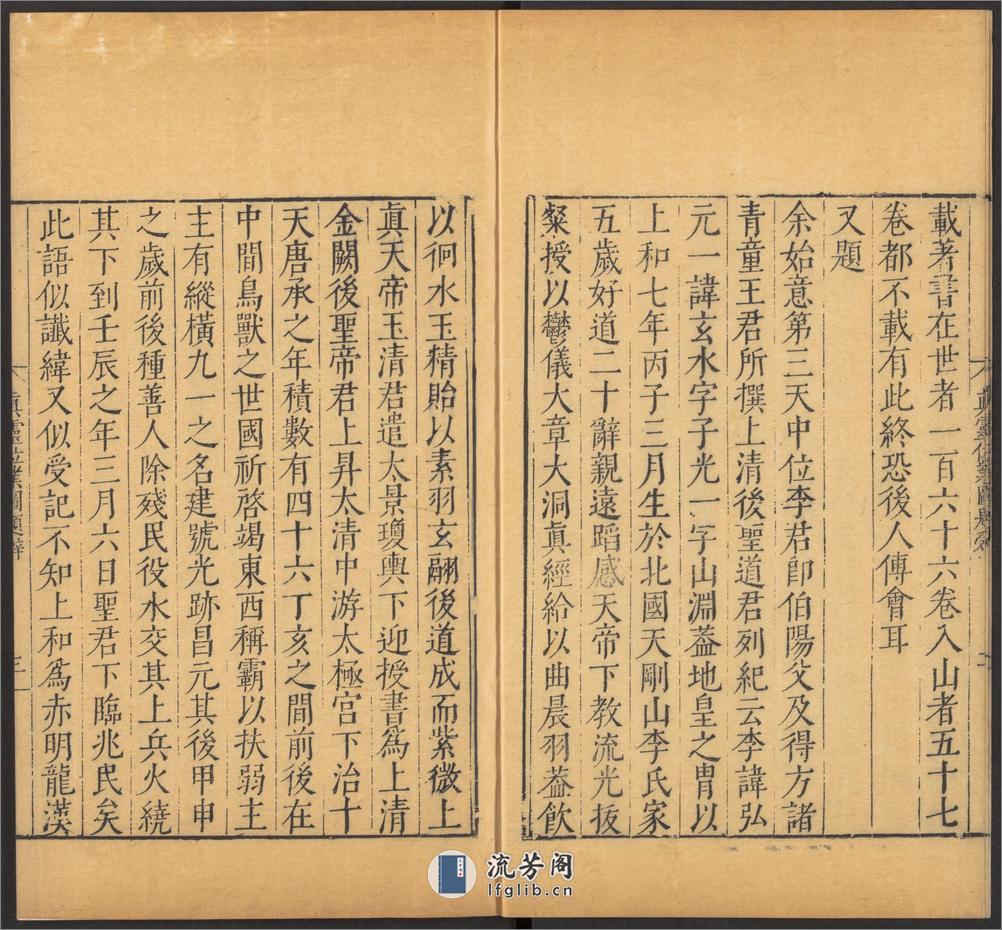 載著書在世者一百六十六卷入山者五十七
卷都不載有此終恐後人傳會耳
又題
余始意第三天中位李君卽伯陽父及得方諸
靑童王君所撰上淸後聖道君列紀云李諱弘
元一諱玄水字子光一字山淵葢地皇之胄以
上和七年丙子三月生於北國天剛山李氏家
五歲好道二十辭親遠蹈感天帝下敎流光抜
粲授以鬱儀大章大洞眞經給以曲晨羽葢飲
以徊水玉精貽以素羽玄翮後道成而紫微上
眞天帝玉淸君遣太景瓊輿下迎授書爲上淸
金闕後聖帝君上昇太淸中游太極宮下治十
天唐承之年積數有四十六丁亥之間前後在
中間鳥獸之世國祈啓竭東西稱霸以扶弱主
主有縱橫九一之名建號光跡昌元其後甲申
之歲前後種善人除殘民役水交其上兵火繞
其下到壬辰之年三月六日聖君下臨兆民矣
此語似讖緯又似受記不知上和爲赤明龍漢
眞靈位業圖題辭
三
流芳阁
lfglib.cn